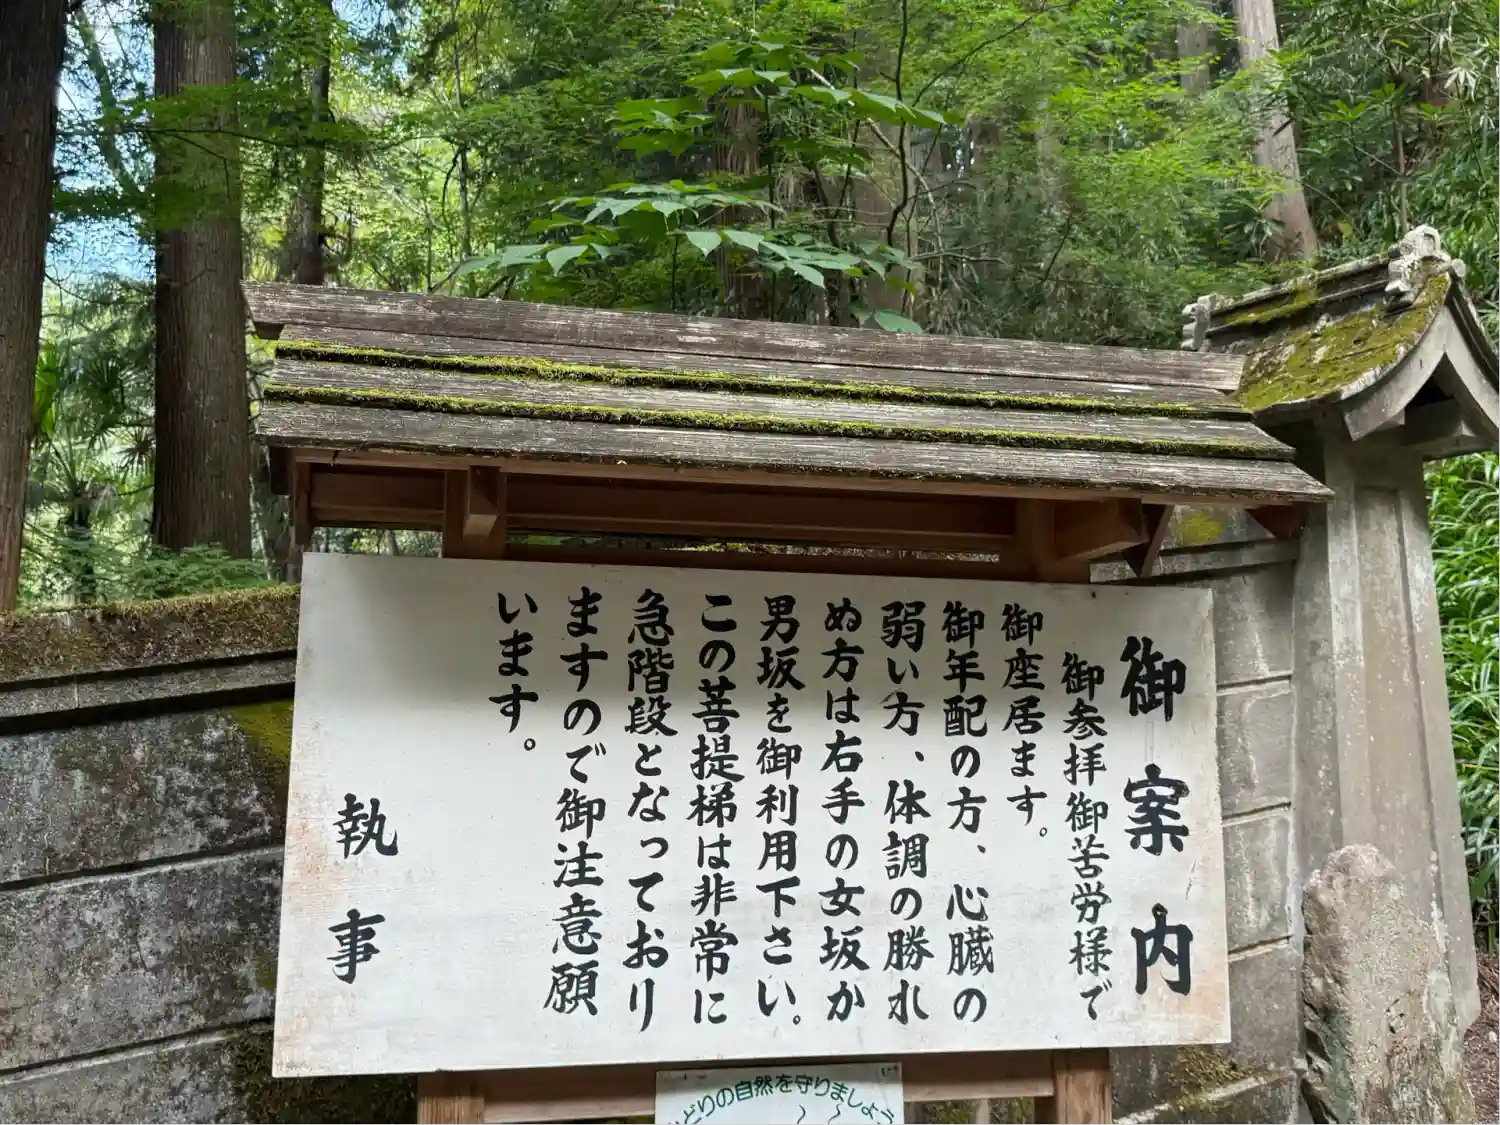 御案内
御参拝御苦労様で
御座居ます。
御年配の方、心臓の
弱い方、体調の勝れ
ぬ方は右手の女坂か
男坂を御利用下さい。
この菩提梯は非常に
急階段となっており
ますので御注意願
います。
執事
どりの自然を守りましょう